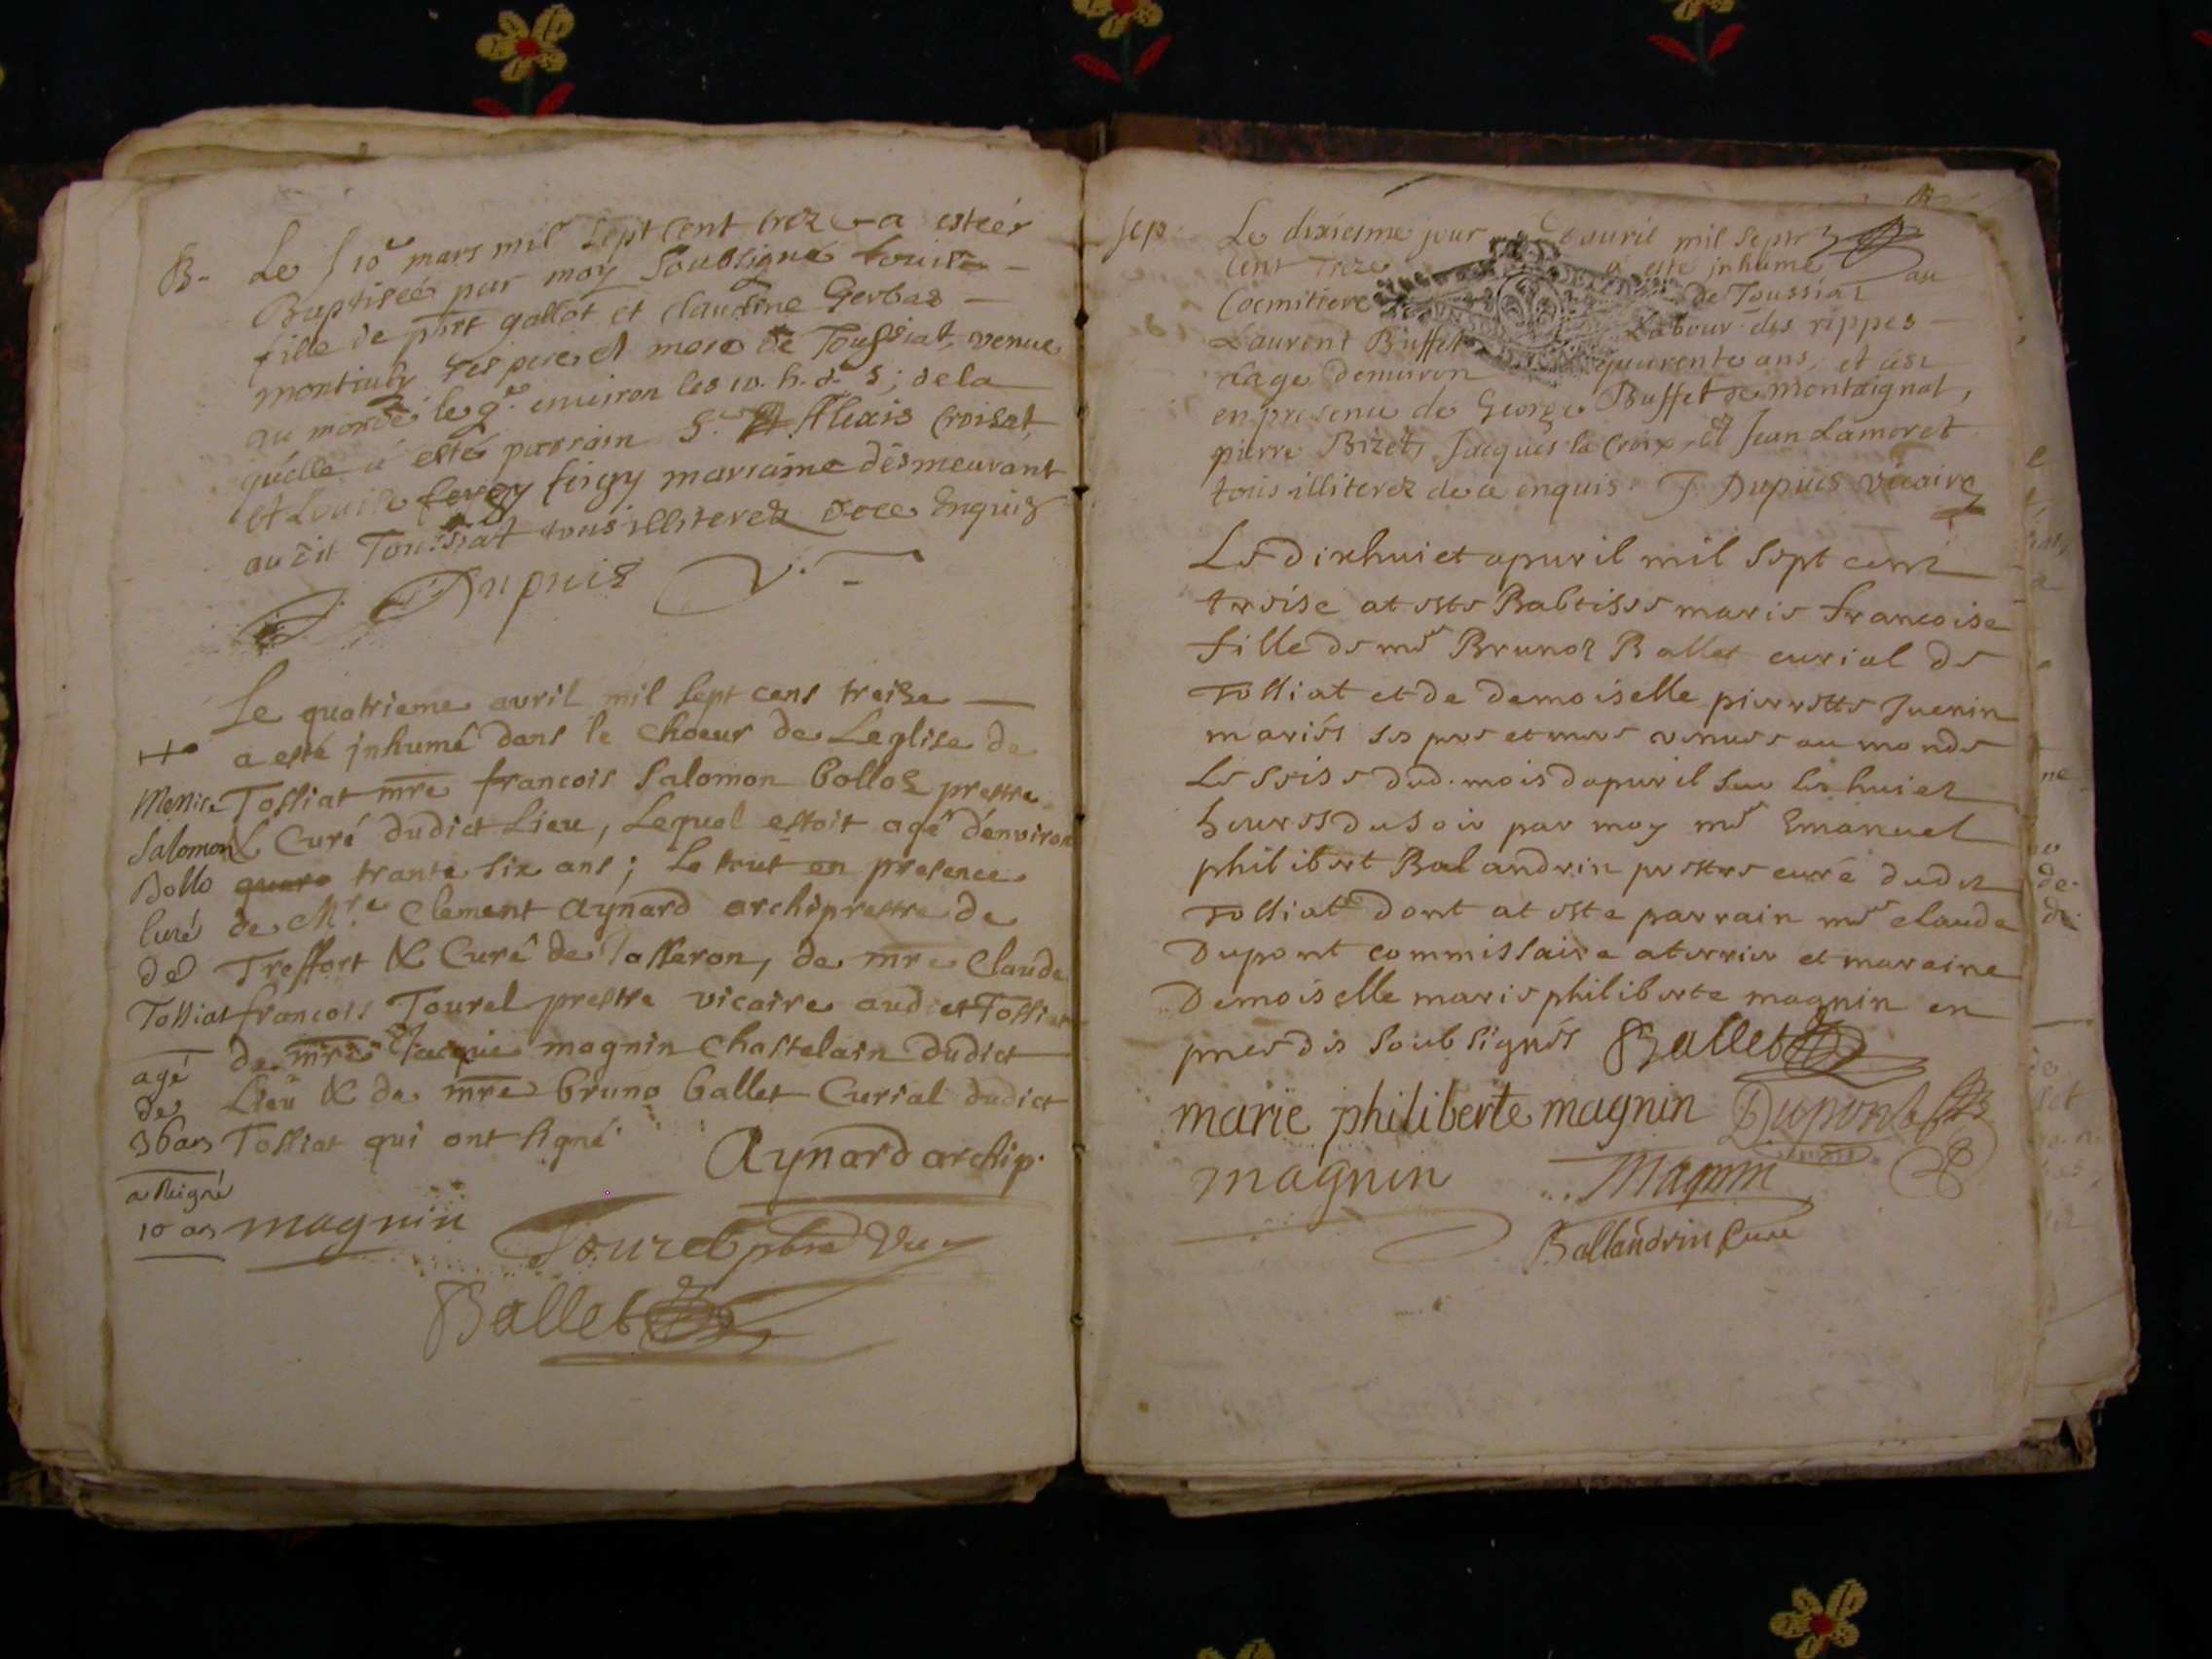 B. Le 10e mars mil sept cent trez a esteé
Baptiseé par moy soubsigné Louise
fille de pirre gallot et claudine Gerbaz
ses pere et mere de Toussiat, venue
au monde le 9e environ les 10. h. d. s; dela
quelle a esté parrain S. Alexis Croisat,
et Louise fevgy feigy marraine desmeurant
au dit Toussiat tous illiterez dece Enquis
Dupuis V.
Le quatrieme avril mil sept cens treize
a esté jnhumé dans le choeur de Leglise de
Tossiat mre francois Salomon bolloz prestre
& Curé dudict Lieu, Lequel estoit agé denviron
quara trante six ans; Le tout en presence
de Mre Clement Aynard archiprestre de
Treffort & Curé de Jasseron, de mre Claude
francois Tourel prestre vicaire audict Tossiat
de mre Jacque magnin Chastelain dudict
Lieu & de mre bruno ballet Curial dudict
Tossiat qui ont signé
Messire
Salomon
Bollo
Curé
de
Tossiat
agé
de
36 ans
10 ans
Aynard archip.
magnin
Tourel pbre Vic
Ballet
sep. Le dixiesme jour d'avril mil sept
cent treze a esté jnhumé au
Coemitiere de Toussiat
Laurent Buffet Labour des rippes
eage denuiron quarente ans, et ce
en presence de George Buffet de montaignat,
pierre Bizet, Jacques la Croix, et Jean Lamoret
tous illiterez de ce enquis. J Dupuis vicaire
Le dixhuict apuril mil sept cent
treise at este Babtisee marie francoise
fille de mre Brunoz Ballet curial de
Tossiat et de demoiselle pierrette Juenin
mariés ses pere et mere venue au monde
Le seise dud. mois dapuril sur les huict
heures du soir par moy mre Emanuel
philibert Balandrin prestre curé dudit
Tossiat dont at este parrain mre claude
Dupont commissaire aterrier et maraine
Demoiselle marie philiberte magnin en
pnce des soubsignés Ballet
marie philiberte magnin Dupont
magnin Magnin
Ballandrin Curé